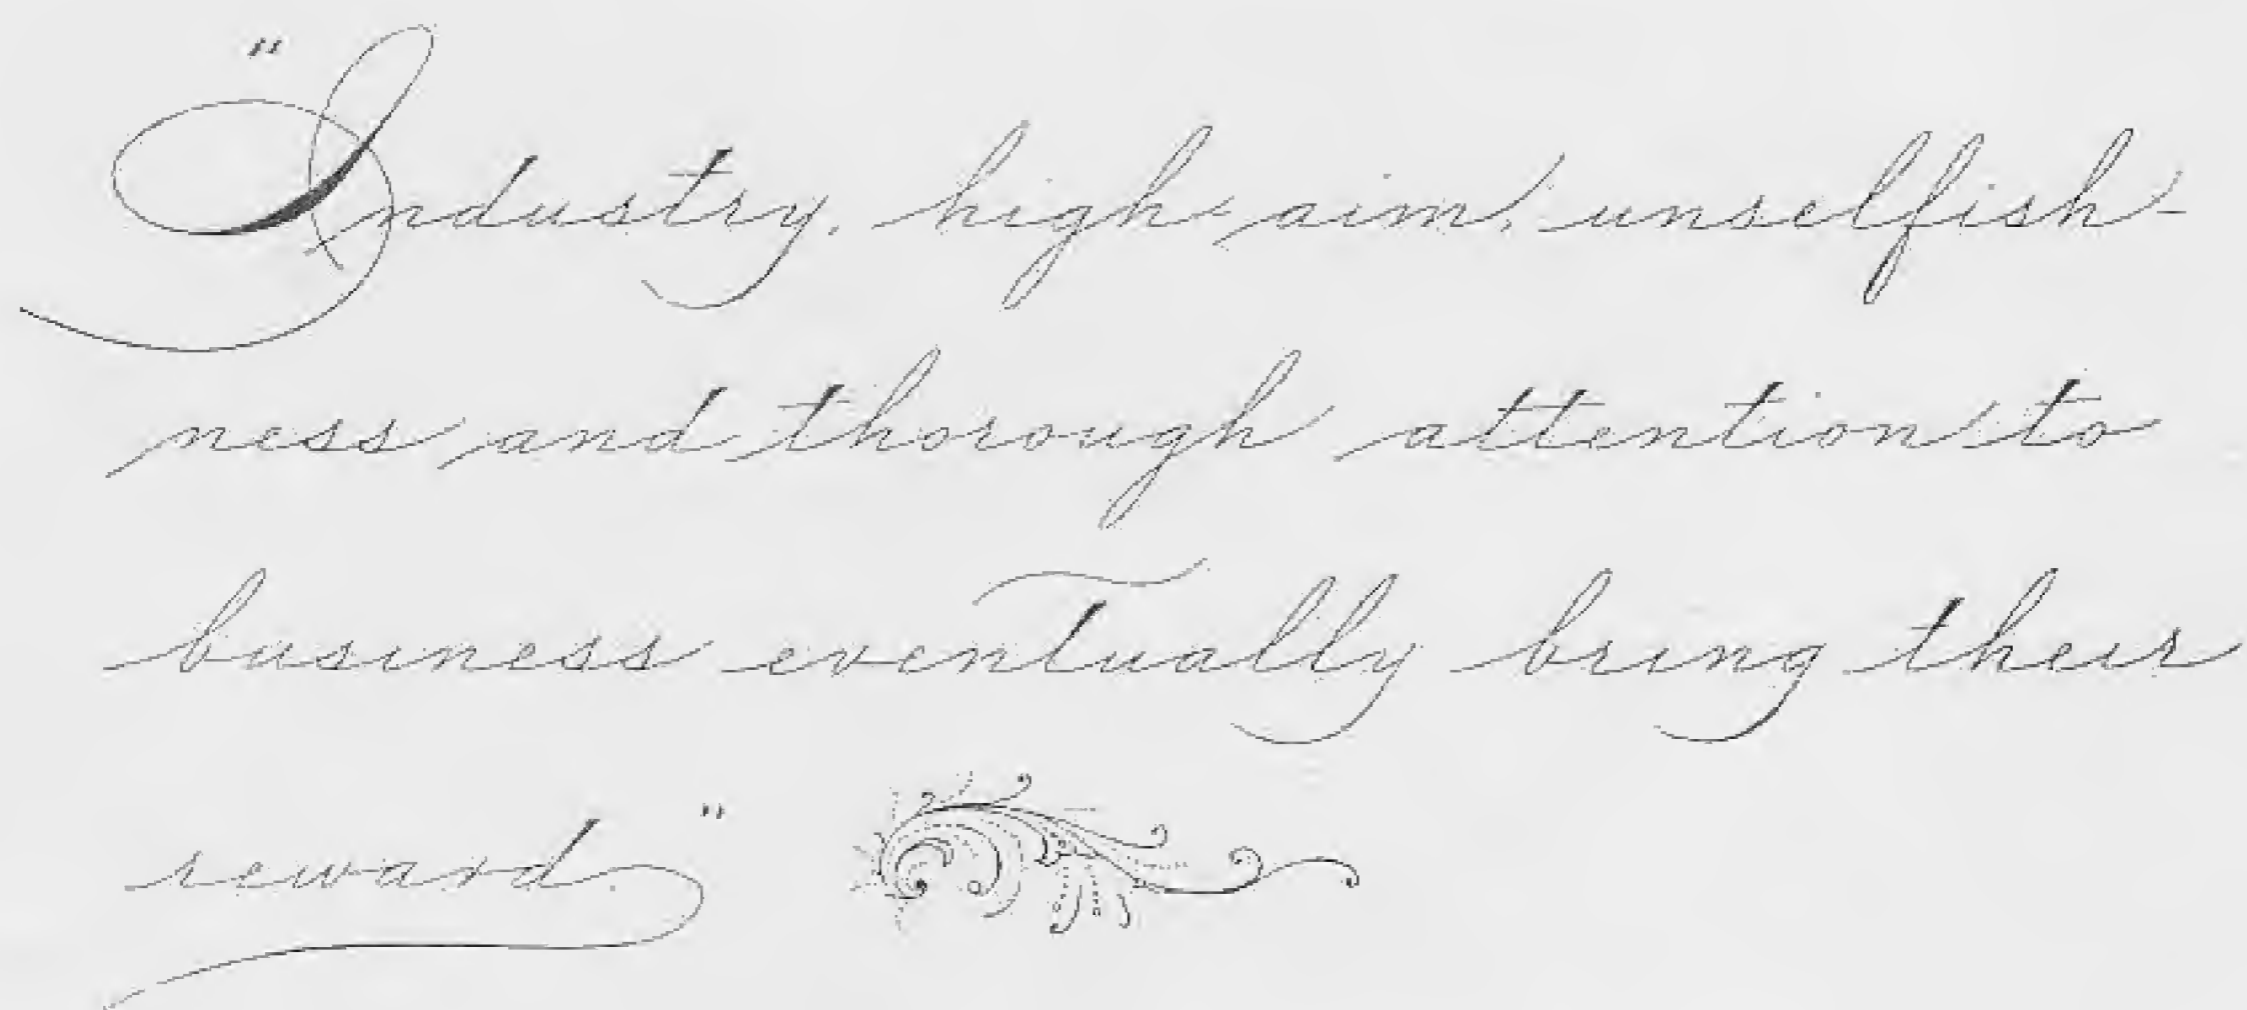 "Industry, high aim, unselfish-
ness and thorough attention to
business eventually bring their
reward."